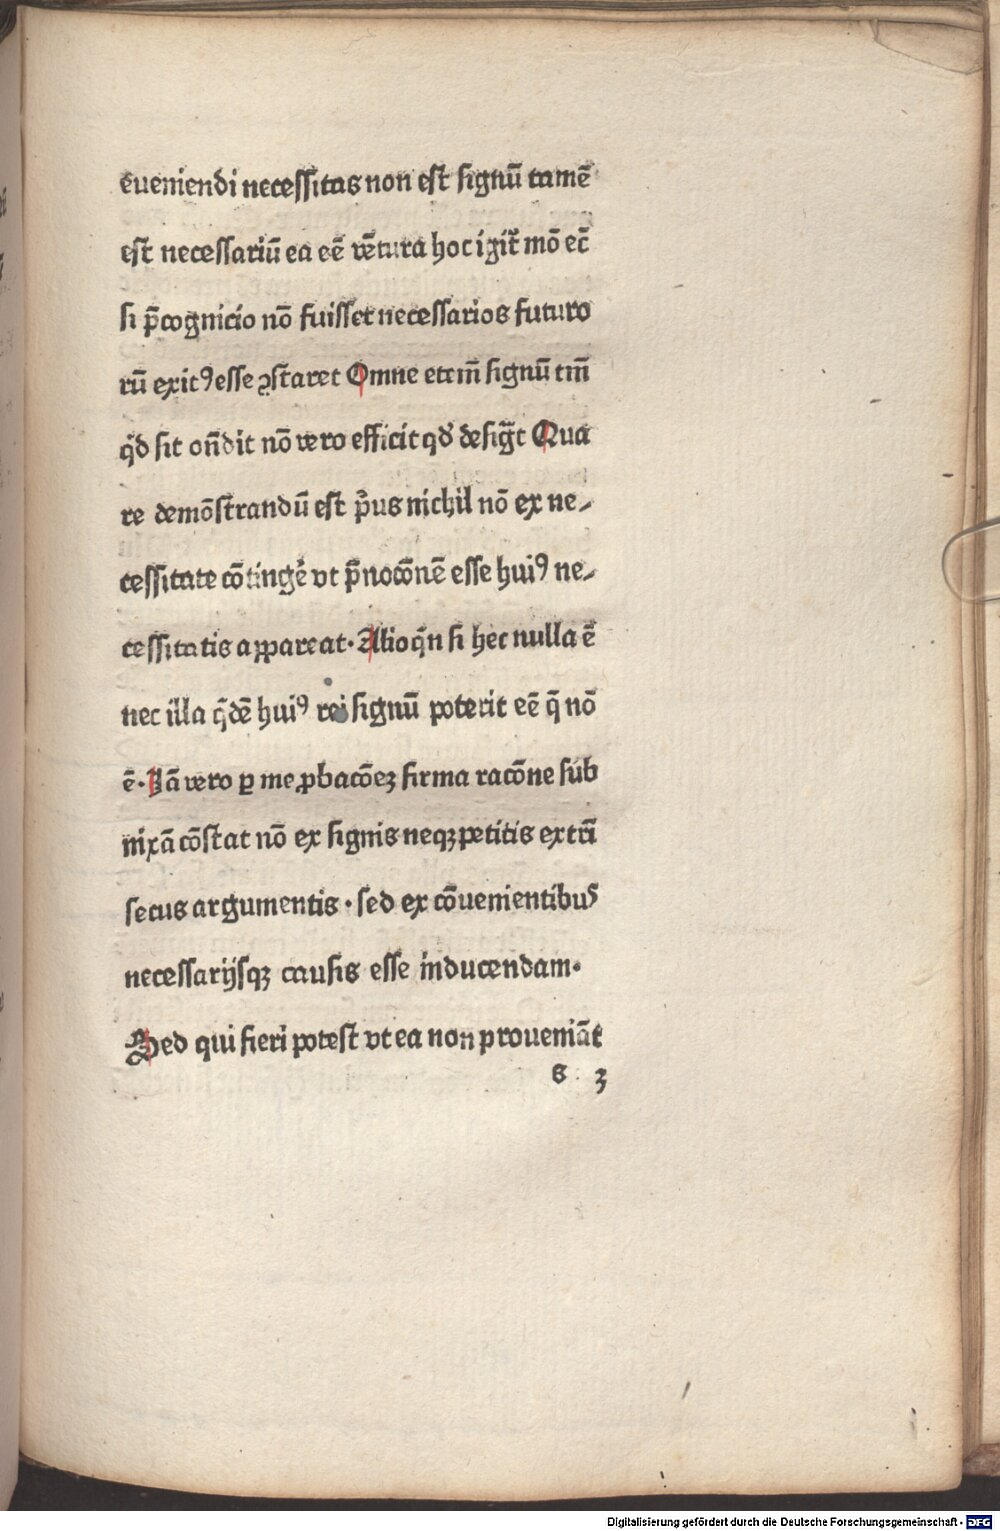 eueniendi necessitas non est signū tamē
est necessariū ea eē vētura hoc igit᷑ mō ec̄
si p̄cognicio nō fuisset necessarios futuro
rū exitꝰ esse ꝯstaret Omne etem̄ signū tm̄
qd̛ sit on̄dit nō vero efficit qd̛ desig̅t Qua
re demōstrandū est pͥus nichil nō ex ne⸗
cessitate cōtingē vt p̄nocōnē esse huiꝰ ne⸗
cessitatis appareat· Alioq̄n si hec nulla ē
nec illa q̄dē huiꝰ rei signū poterit eē q̄ nō
ē· Iā vero ꝑ me ꝓbacōeꝫ firma racōne sub
nixā cōstat nō ex signis neqꝫ petitis extrī
secus argumentis · sed ex cōuenientibus
necessarijsqꝫ causis esse inducendam·
Sed qui fieri potest vt ea non proueniāt
s 3
Digitalisierung gefördert durch die Deutsche Forschungsgemeinschaft - DFG